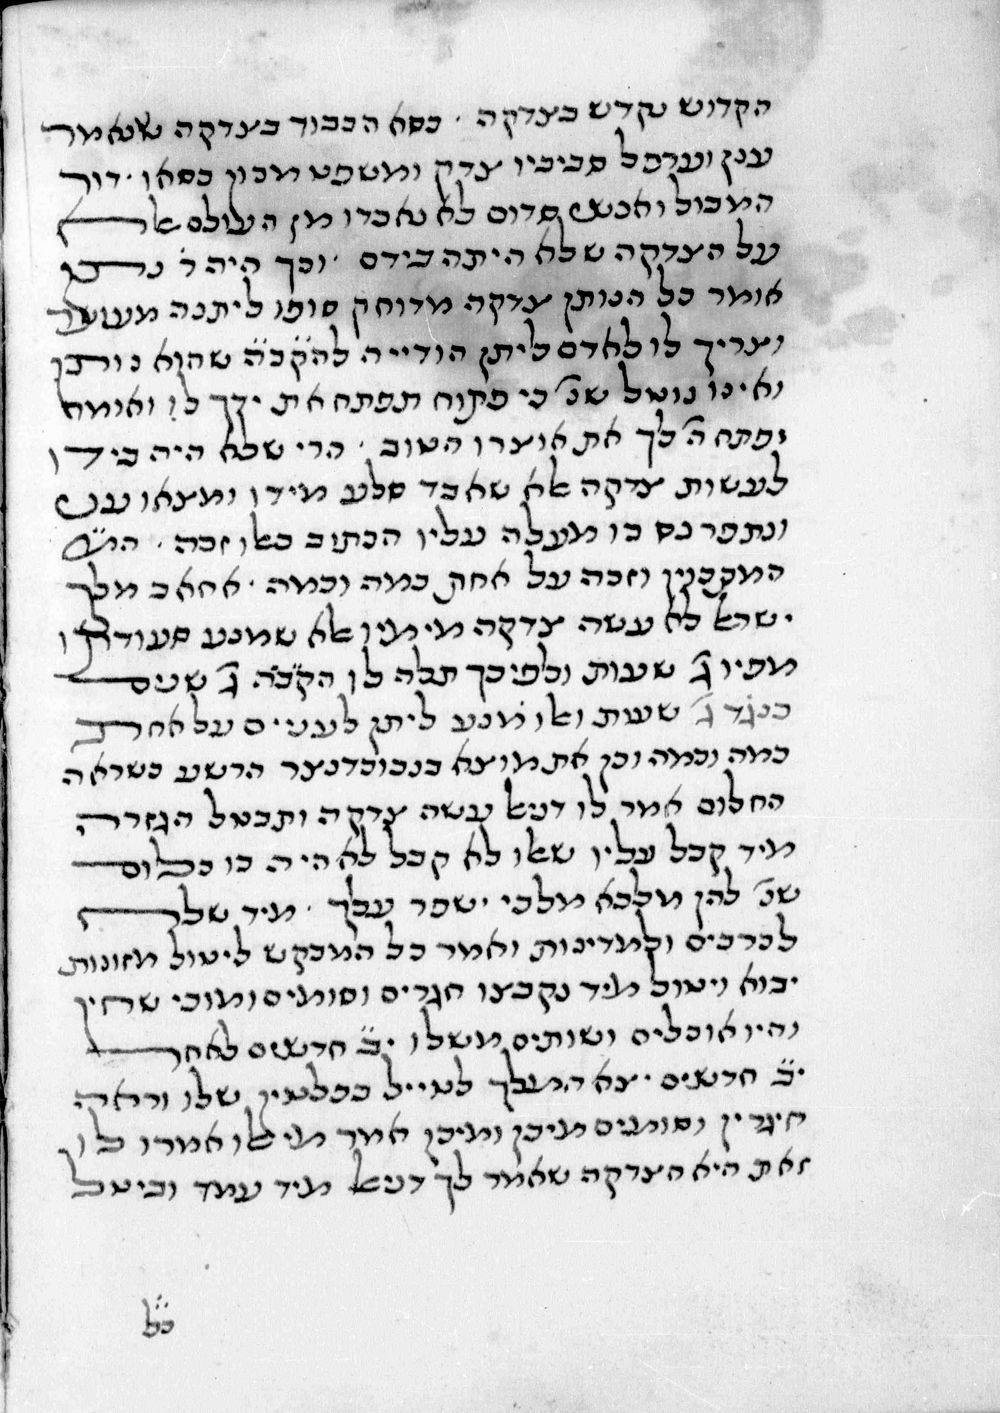 הקדוש נקדש בצדקה · כסא הכבוד בצדקה שנאמר
ענן וערפל סביביו צדק ומשפט מכון כסאו · דור
המבול ואנשי סדום לא נאבדו מן העולם אלא
על הצדקה שלא היתה בידם · וכך היה ר' נתן
אומר כל הנותן צדקה מדוחק סופו ליתנה מעושר
וצריך לו לאדם ליתן הודייה להקב״ה שהוא נותן
ואינו נוטל שנ' כי פתוח תפתח את ידך לו ואומר
יפתח ה' לך את אוצרו הטוב · הרי שלא היה בידו
לעשות צדקה אלא שאבד סלע מידו ומצאו עני
ונתפרנס בו מעלה עליו הכתוב כאלו זכה · המ
המתכוין וזכה על אחת כמה וכמה · אחאב מלך
ישראל לא עשה צדקה מימיו אלא שמנע סעודתו
מפיו ג' שעות ולפיכך תלה לו הקב״ה ג' שנים
כנגד ג' שעות ואלו מנע ליתן לעניים על אחת
כמה וכמה וכן את מוצא בנבוכדנצר הרשע כשראה
החלום אמר לו דניאל עשה צדקה ותבטל הגזרה
מיד קבל עליו שאלו לא קבל לא היה בו כלום
שנ' להן מלכא מלכי ישפר עלך · מיד שלח
לכרכים ולמדינות ואמר כל המבקש ליטול מזונות
יבוא ויטול מיד נקבצו חגרים וסומים ומוכי שחין
והיו אוכלים ושותים משלו י״ב חדשים לאחר
י״ב חדשים יצא המלך לטייל בפלטין שלו וראה
חיגרין וסומים מיכן ומיכן אמר מי אלו אמרו לו
זאת היא הצדקה שאמר לך דניאל מיד עמד וביטל